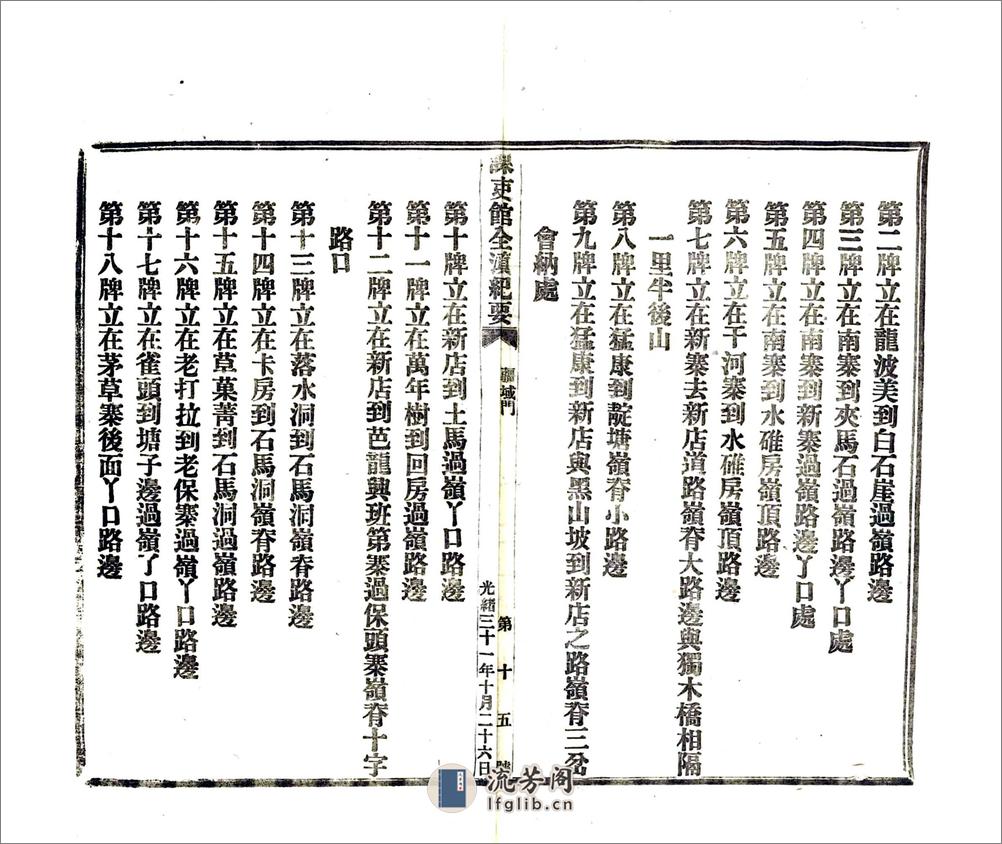 第二牌立在龍波美到白石崖過嶺路邊
第三牌立在南寨到夾馬石過嶺路邊丫口處
第四牌立在南寨到新寨過嶺路邊丫口處
第五牌立在南寨到水碓房嶺頂路邊
第六牌立在干河寨到水碓房嶺頂路邊
第七牌立在新寨去新店道路嶺脊大路邊與獨木橋相隔
一里半後山
第八牌立在猛康到龍塘嶺脊小路邊
第九牌立在猛康到新店與黑山坡到新店之路嶺脊三岔
會納處
課吏館全滇紀要
疆域門
第十五號
光緒三十一年十月二十六日
第十牌立在新店到土馬過嶺丫口路邊
第十一牌立在萬年樹到回房過嶺路邊
第十二牌立在新店到芭龍興班第寨過保頭寨嶺脊十字
路口
第十三牌立在落水洞到石馬洞嶺脊路邊
第十四牌立在卡房到石馬洞嶺脊路邊
第十五牌立在草菓菁到石馬洞過嶺路邊
第十六牌立在老打拉到老保寨過嶺丫口路邊
第十七牌立在雀頭到塘子邊過嶺了口路邊
第十八牌立在茅草寨後面丫口路邊
流芳阁
lfglib.cn